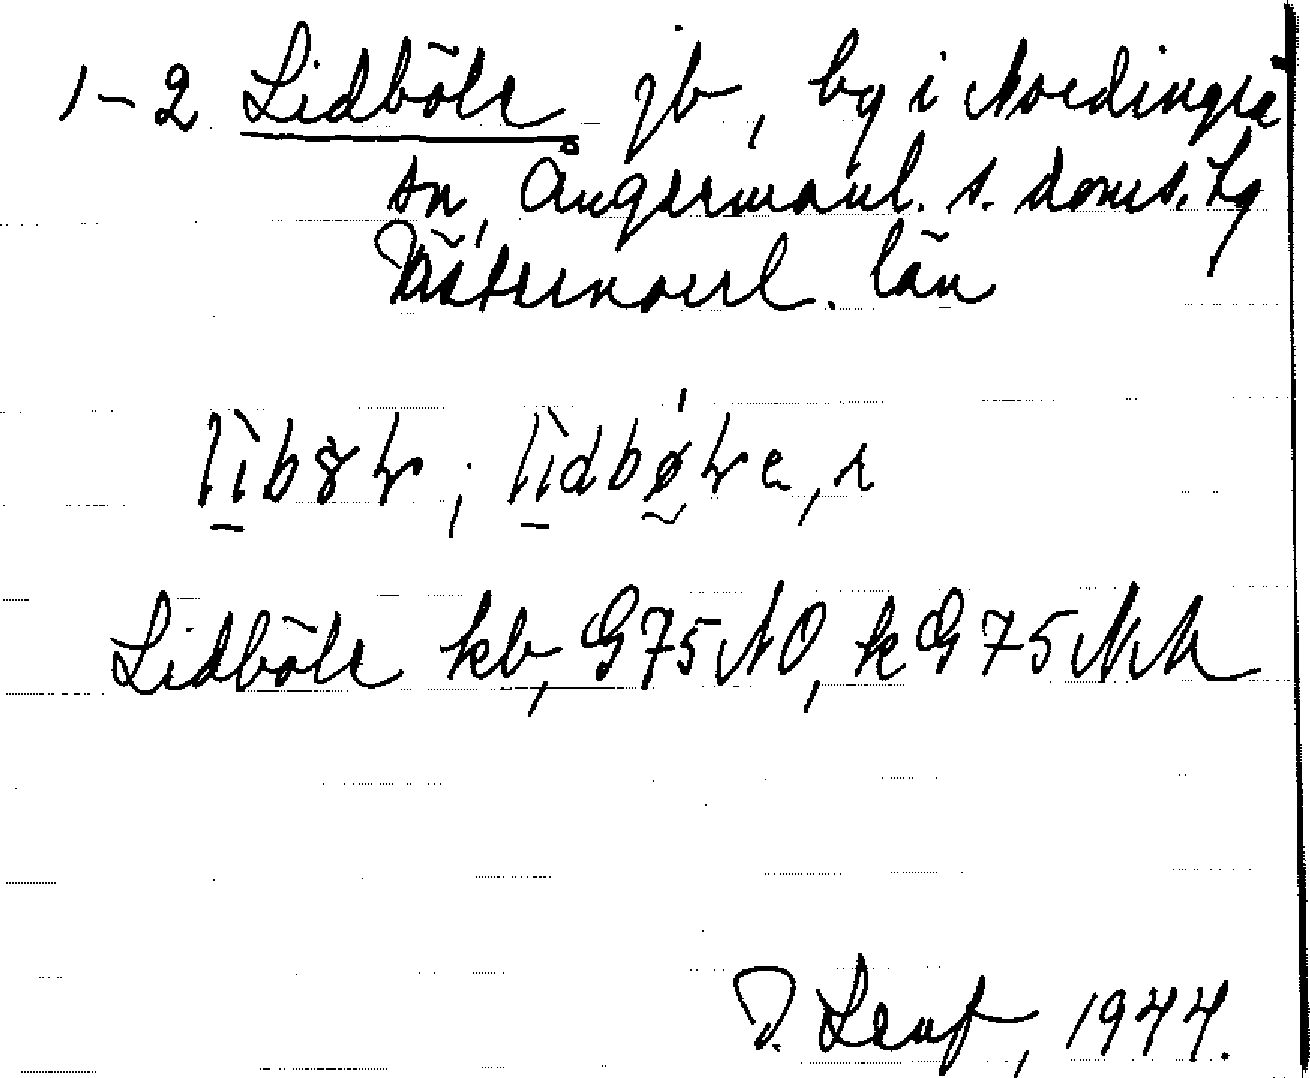 1-2 Lidböle jb, by i Nordingrå
sn, Ångermanl. s. doms. hg
Västernorrl. län
Lidböle kb, G75NO, k G75NV
D. Lenf, 1944.